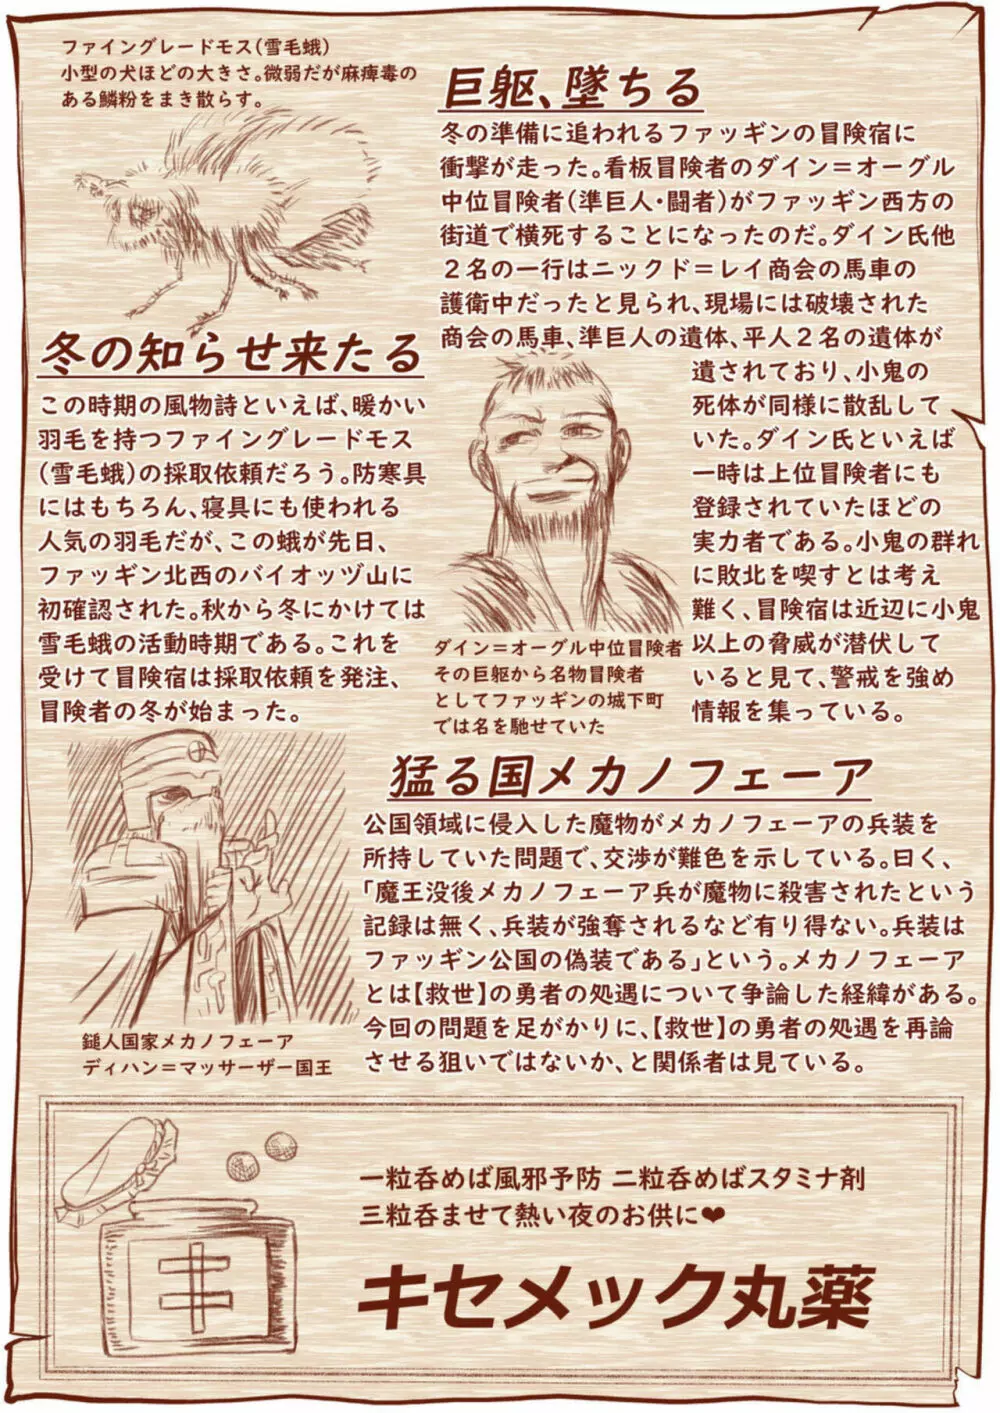 ファイングレードモス(雪毛蛾)
小型の犬ほどの大きさ。微弱だが麻痺毒の
ある鱗粉をまき散らす。
冬の知らせ来たる
この時期の風物詩といえば、暖かい
羽毛を持つファイングレードモス
(雪毛蛾)の採取依頼だろう。防寒具
にはもちろん、寝具にも使われる
人気の羽毛だが、この蛾が先日、
ファッギン北西のバイオッヅ山に
初確認された。秋から冬にかけては
雪毛蛾の活動時期である。これを
受けて冒険宿は採取依頼を発注、
冒険者の冬が始まった。
巨躯、墜ちる
冬の準備に追われるファッギンの冒険宿に
衝撃が走った。看板冒険者のダイン=オーグル
中位冒険者(準巨人・闘者)がファッギン西方の
街道で横死することになったのだ。ダイン氏他
2名の一行はニックド=レイ商会の馬車の
護衛中だったと見られ、現場には破壊された
商会の馬車、準巨人の遺体、平人2名の遺体が
遺されており、小鬼の
死体が同様に散乱して
いた。ダイン氏といえば
一時は上位冒険者にも
登録されていたほどの
実力者である。小鬼の群れ
に敗北を喫すとは考え
難く、冒険宿は近辺に小鬼
以上の脅威が潜伏して
いると見て、警戒を強め
情報を集っている。
ダイン=オーグル中位冒険者
その巨躯から名物冒険者
としてファッギンの城下町
では名を馳せていた
猛る国メカノフェーア
公国領域に侵入した魔物がメカノフェーアの兵装を
所持していた問題で、交渉が難色を示している。曰く、
「魔王没後メカノフェーア兵が魔物に殺害されたという
記録は無く、兵装が強奪されるなど有り得ない。兵装は
ファッギン公国の偽装である」という。メカノフェーア
とは【救世】の勇者の処遇について争論した経緯がある。
今回の問題を足がかりに、【救世】の勇者の処遇を再論
させる狙いではないか、と関係者は見ている。
鎚人国家メカノフェーア
ディハン=マッサーザー国王
一粒呑めば風邪予防 二粒呑めばスタミナ剤
三粒呑ませて熱い夜のお供に❤
キセメック丸薬